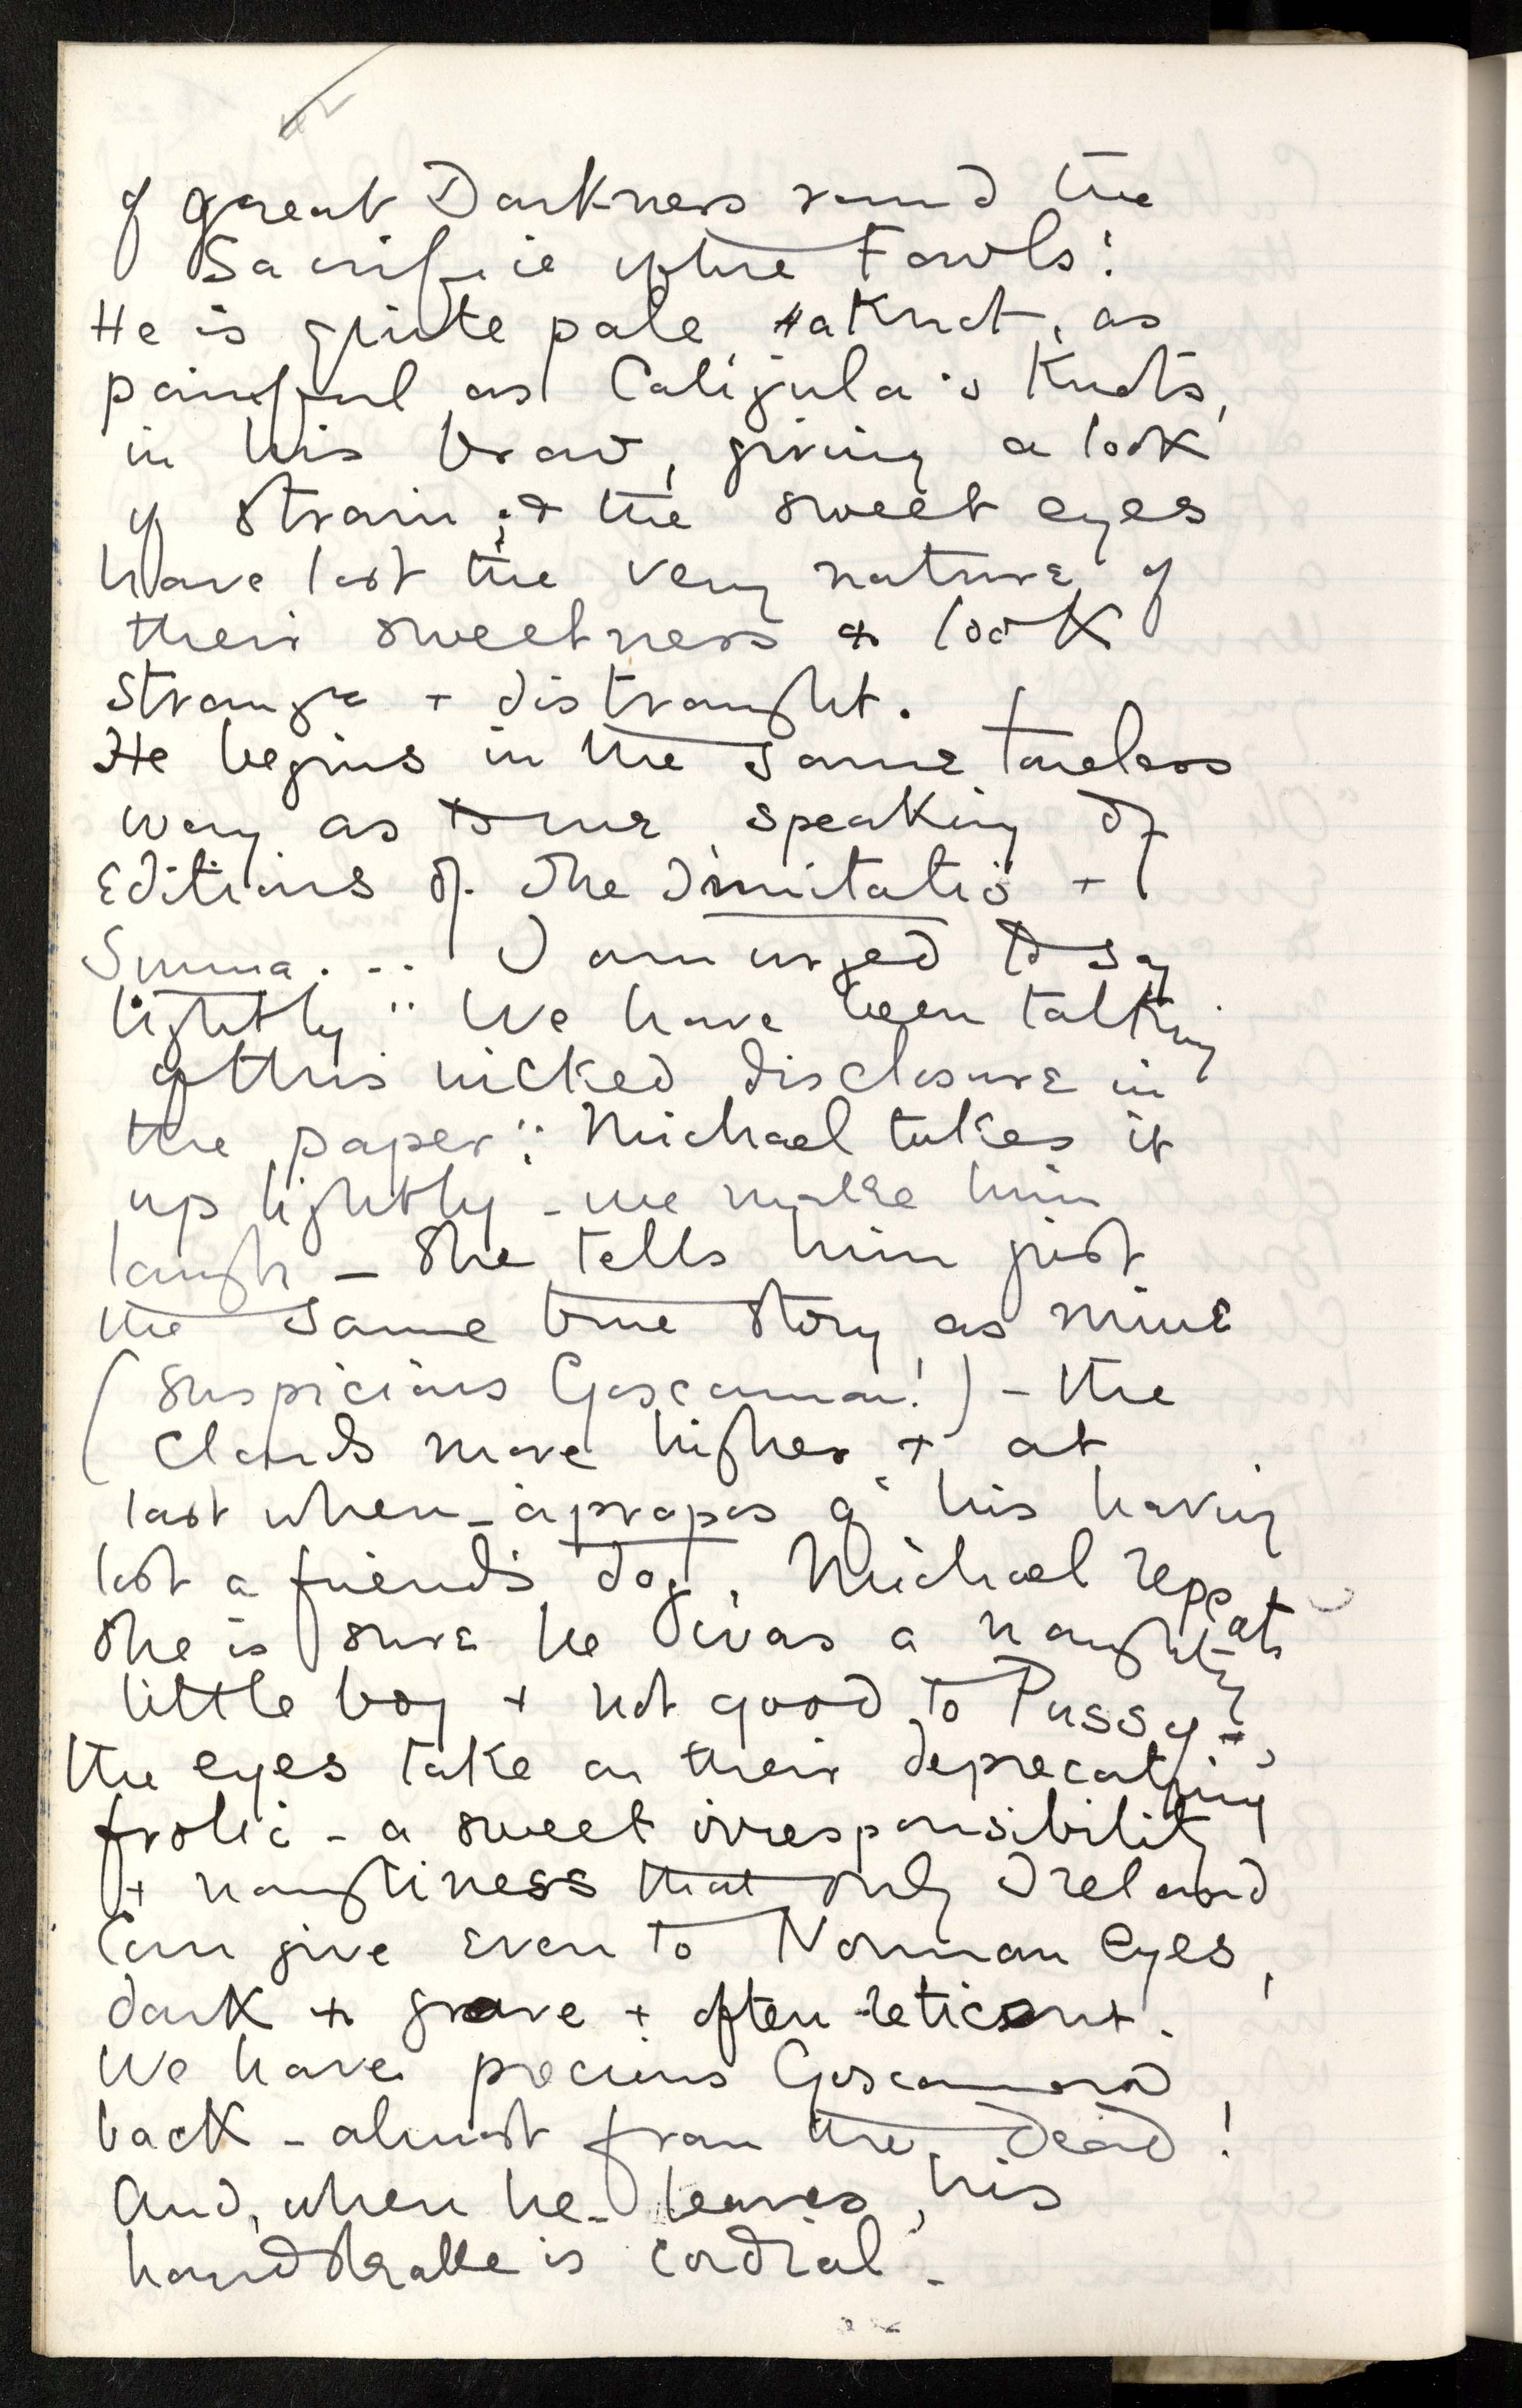 of great Darkness round the
Sacrifice of the Fowls!
He is quite pale, a Knot, as
painful as Caligula's Knots,
in his brow, giving a look
of strain; & the sweet eyes
have lost the very nature of
their sweetness & look
strange + distraught.
He begins in the same toneless
way as to me, speaking of
Editions of the Imitatio +
Summa. ... I am urged to say
lightly "We have been talking
of this wicked disclosure in
the paper": Michael takes it
up lightly - we make him
laugh - She tells him just
the same true story as mine
(suspicious Goscannon!) - the
Clouds move higher + at
last when - àpropos of his having
lost a friend's dog, Michael repeats
she is sure he was a naughty
little boy + not good to Pussy -,
the eyes take on their deprecating
frolic - a sweet irresponsibility
+ naughtiness that only Ireland
Can give even to Norman eyes,
dark & grave + often reticent.
We have precious Goscannon
back - almost from the dead!
And, when he leaves, his
handshake is cordial.